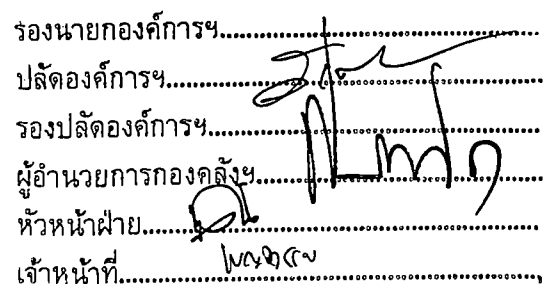 รองนายกองค์การฯ
ปลัดองค์การฯ
รองปลัดองค์การฯ
ผู้อำนวยการกองคลังฯ
หัวหน้าฝ่าย
เจ้าหน้าที่